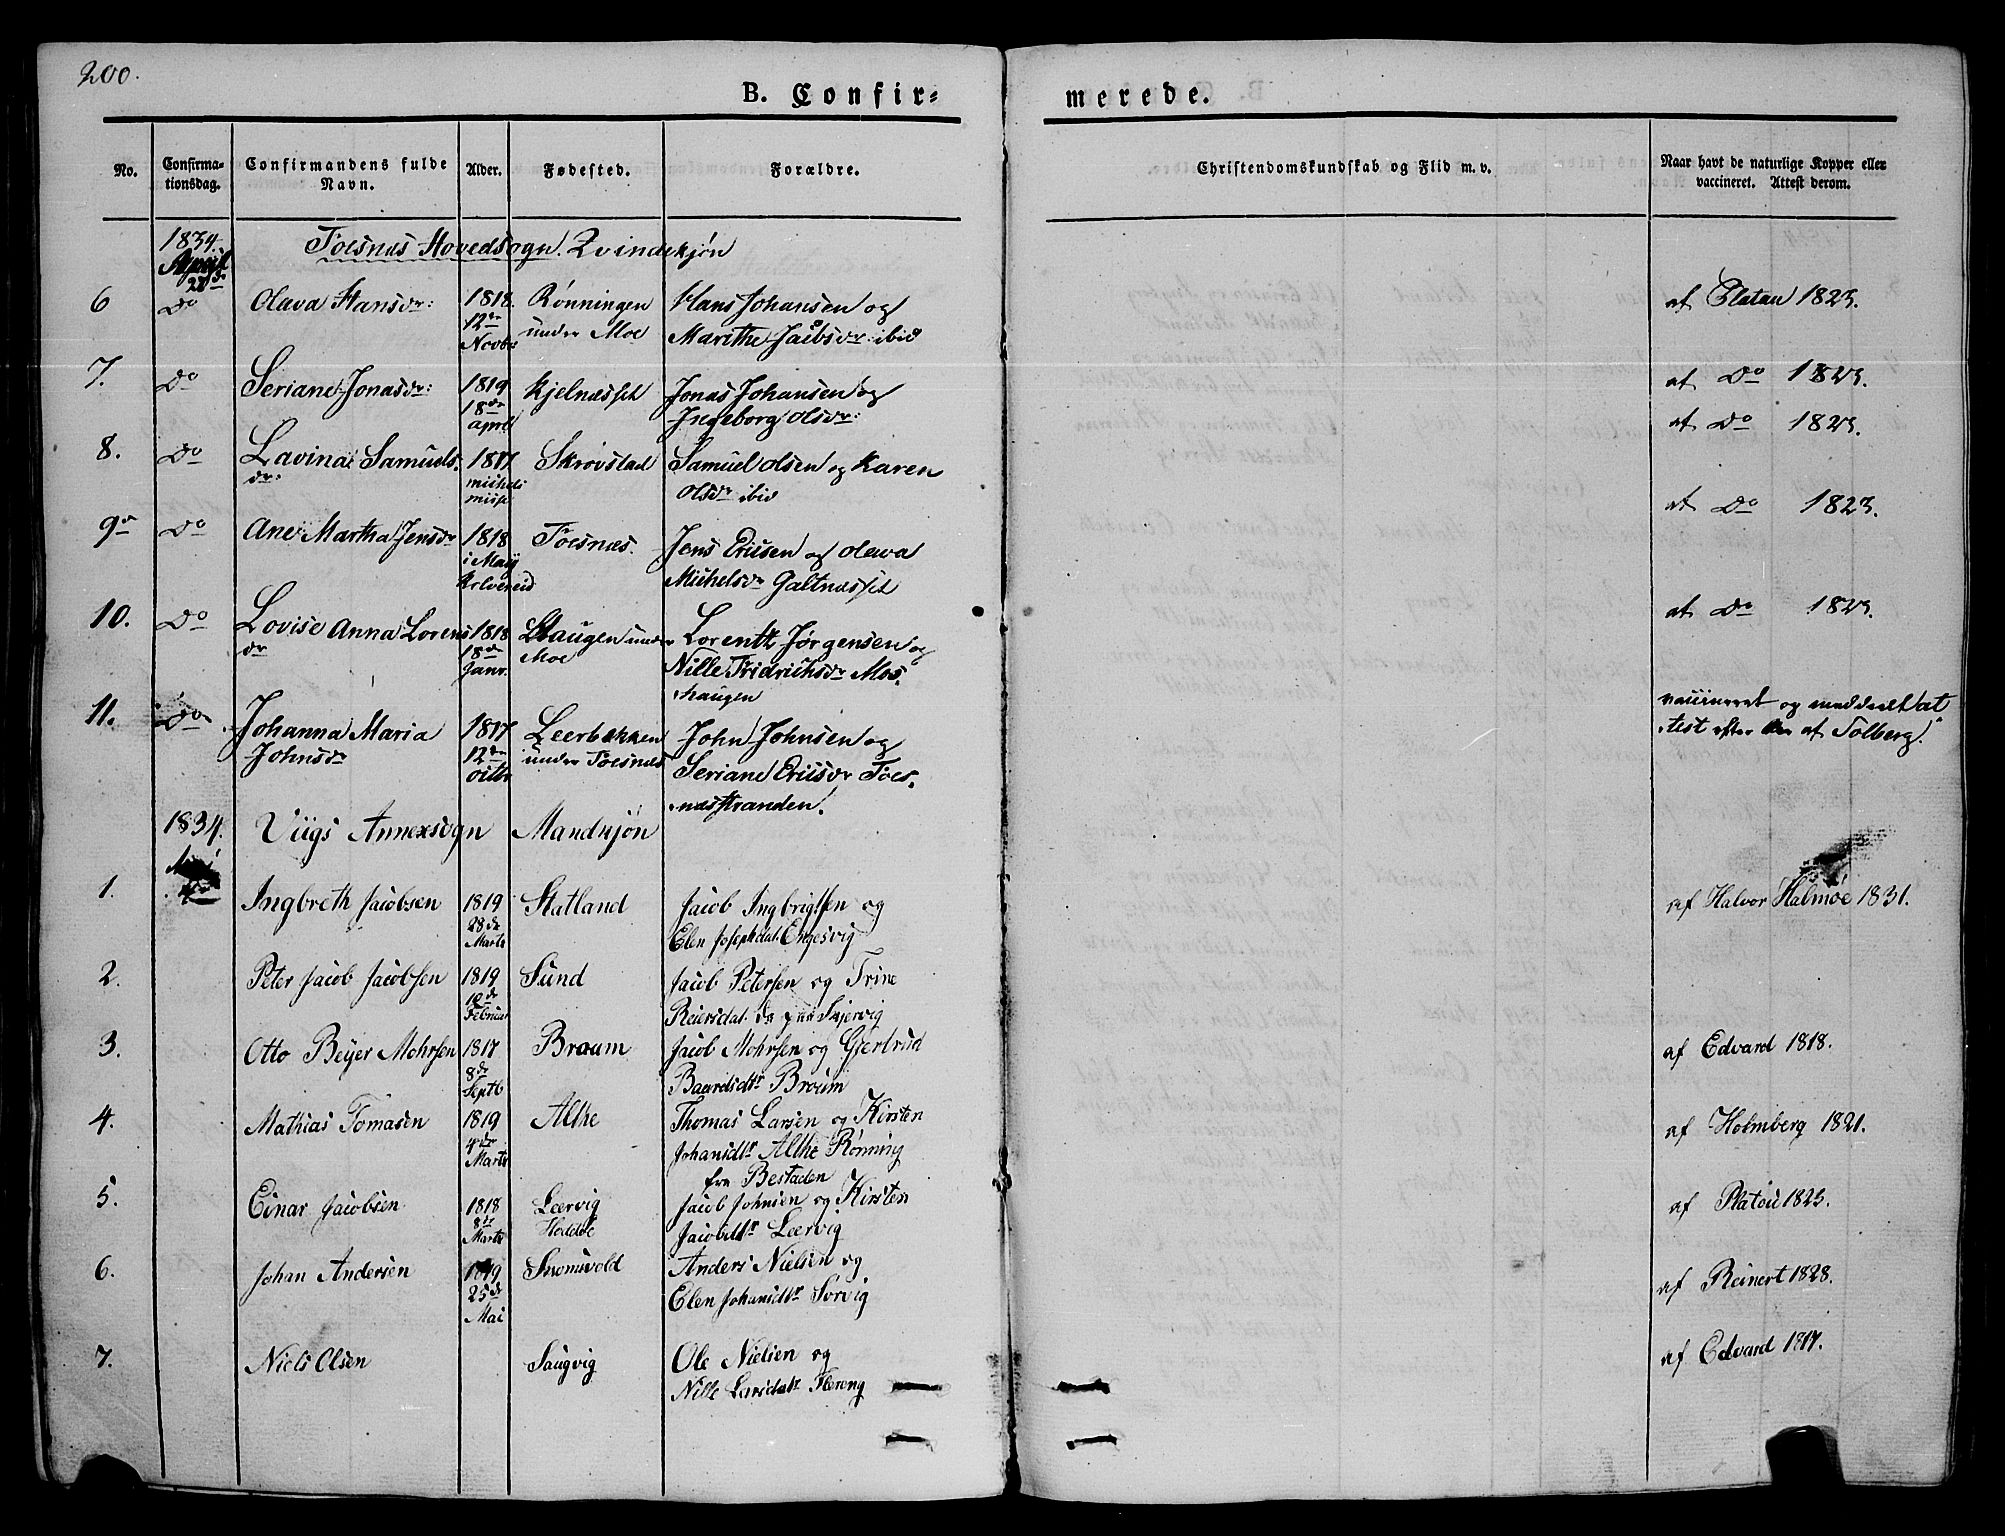 200.
B. Confir-
merede.
No.
Confirma-
tionsdag.
Confirmandens fulde
Navn.
Alder.
Fødested.
Forældre.
Christendomskundskab og Flid m. v.
Naar havt de naturlige Kopper eller
vaccineret. Attest derom.
1834. Foesnæs Hovedsogn. Qvindekjøn
April
6 do Olava Hansdr: 1818. Rønningen Hans Johansen og af Platau 1823.
12te under Moe Marithe Jacobsdr: ibid
Novbr
7. do Seriane Jonasdr: 1819 Kjelnæsset Jonas Johansen og af do 1823.
18de Ingeborg Olsdr:
april
8. do Lavina Samuels- 1817 Skrøvstad Samuel Olsen og Karen af do 1823.
dr: micheli Olsdr ibid
misse
9de do Ane Martha Jensdr 1818 Foesnæs. Jens Ericsen og Olava af do 1823.
i Maij Michelsdr Galtnæsset
Kolvereid
10. do Lovise Anna Lorens 1818 Haugen under Lorentz Jørgensen og af do 1823.
dr 18de Moe Nille Fridrichsdr Mos-
Janr. haugen
11. do Johanna Maria 1817 Leerbakken John Johnsen og vaccineret og meddeelt at
Johnsdr 12te under Foesnæs Seriane Ericsdr Foes- test af Solberg.
octbr næsstranden.
1834. Viigs Annexsogn Mandkjøn
1. Ingbreth Jacobsen 1819 Statland Jacob Ingbrigtsen og af Halvor Halmøe 1831.
28de Elen Josephdat. Engesvig
Marts
2. Peter Jacob Jacobsen 1819 Sund Jacob Petersen og Trine
Reiersdat. Skjervig
Februar
3. Otto Beijer Mohrsen 1817 Braum Jacob Mohrsen og Giertrud af Edvard 1818.
8de Baardsdtr Braum
Septb
4. Mathias Tomasen 1819 Althe Thomas Larsen og Kirsten af Holmberg 1821.
4de Johansdtr Althe Rønning
Marts fra Bestaden
5. Einar Jacobsen 1818 Lærvig Jacob Johnsen og Kirsten af Platou 1823.
8de Hoddøe Jacobdtr Lærvig
Marts
6. Johan Andersen 1819 Snomvold Anders Nielsen og af Reinert 1828.
25de Elen Johansdtr Sorvig
Mai
7. Niels Olsen Saugvig Ole Nielsen og af Edvard 1817.
Nille Larsdatr Flereng